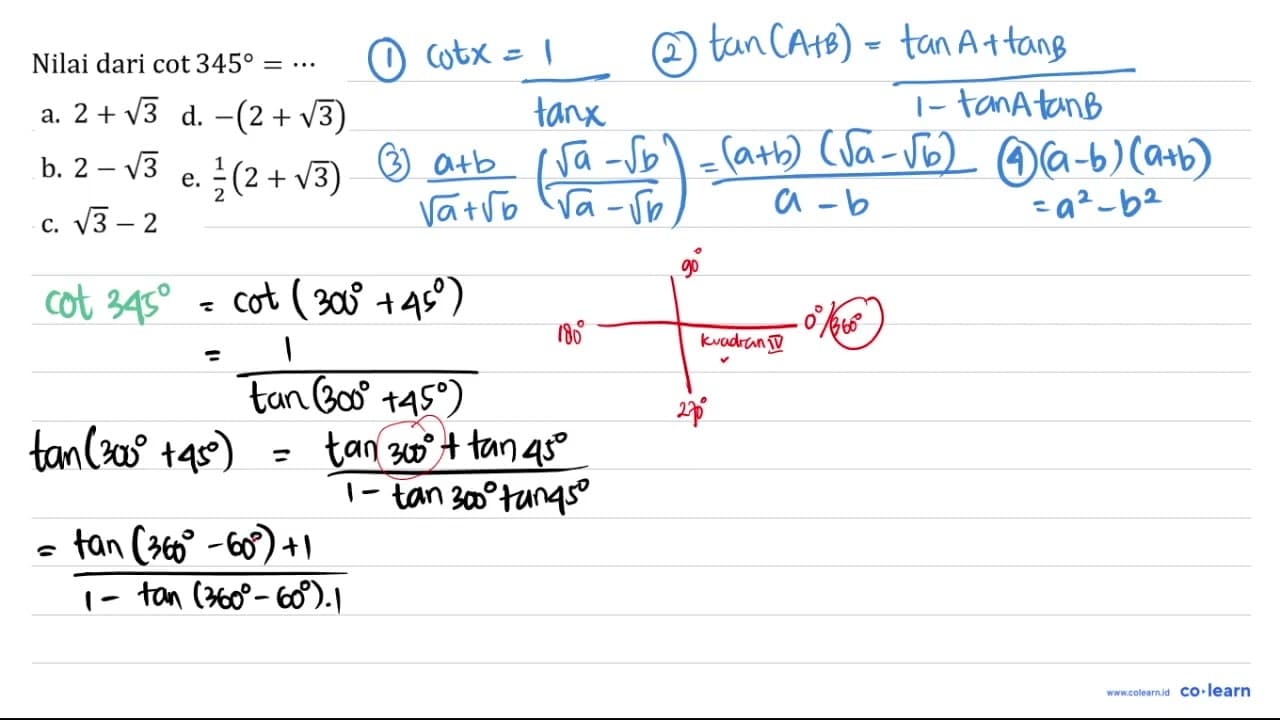 Nilai dari cot 345° = ⋯
a. 2 + √3 d. −(2 + √3)
b. 2 − √3 e. 1/2 (2 + √3)
c. √3 − 2
① cotx = 1/tanx
② tan(A+B) = (tanA + tanB)/(1 − tanA tanB)
③ (a+b)/(√a+√b) ((√a −√b)/(√a −√b)) = (a+b)(√a−√b)/(a − b)
④ (a−b)(a+b)
= a² − b²
cot 345° = cot (300° + 45°)
= 1/tan(300° + 45°)
90°
180°
0°/360°
kuadran IV
270°
tan(300° + 45°) = (tan 300° + tan 45°)/(1 − tan 300° tan45°)
= (tan (360° − 60°) + 1)/(1 − tan (360° − 60°).1)
www.colearn.id co·learn